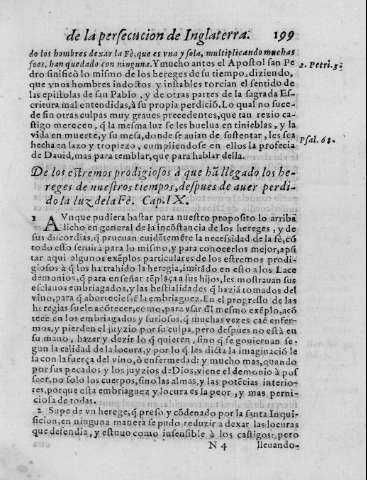 de la persecucion de Inglaterra. 199
do los hombres dexar la Fè, que es vna y sola, multiplicando muchas
fees, han quedado con ninguna. Y mucho antes el Apostol san Pe
dro sinificò lo mismo de los hereges de su tiempo, diziendo,
que vnos hombres indoctos y instables torcian el sentido de
las epistolas de san Pablo, y de otras partes de la sagrada Es-
critura mal entendidas, à su propia perdiciõ. Lo qual no suce-
de sin otras culpas muy graues precedentes, que tan rezio ca-
stigo merecen, q̃ la mesma luz se les buelua en tinieblas, y la
vida en muerte, y su mesa, donde se auian de sustentar, les sea
hecha en lazo y tropieço, cumpliendose en ellos la profecia
de Dauid, mas para temblar, que para hablar della.
2. Petri. 3.
Psal. 68.
De los estremos prodigiosos à que hã llegado los he-
reges de nuestros tiempos, despues de auer perdi-
do la luz de la Fè. Cap. IX.
1 AVnque pudiera bastar para nuestro proposito lo arriba
dicho en general de la incõstancia de los hereges, y de
sus discordias, q̃ prueuan euidẽtemẽte la necessidad de la fè, cõ
todo esto seruirà para lo mismo, y para conocerlos mejor, apũ
tar aqui algunos exẽplos particulares de los estremos prodi-
giosos à q̃ los ha trahido la heregia, imitãdo en esto a los Lace
demonios, q̃ para enseñar tẽplãça a sus hijos, les mostrauan sus
esclauos embriagados, y las bestialidades q̃ haziã tomados del
vino, para q̃ aborreciessẽ la embriaguez. En el progresso de las
heregias suele acõtecer, como, para vsar dl mesmo exẽplo, acõ
tece en los embriagados y furiosos, q̃ muchas vezes caẽ enfer-
mos, y pierden el juyzio por su culpa, pero despues no està en
su mano, hazer y dezir lo q̃ quieren, sino q̃ se gouiernan se-
gun la calidad de la locura, y por lo q̃ les dicta la imaginaciõ le
sa con la fuerça del vino, ò enfermedad: y mucho mas, quando
por sus pecados y los juyzios de Dios, viene el demonio à pos
seer, no solo los cuerpos, sino las almas, y las potẽcias interio-
res, porque esta embriaguez y locura es la peor, y mas perni-
ciosa de todas.
2 Supe de vn herege, q̃ preso y cõdenado por la santa Inqui-
sicion, en ninguna manera se pudo reduzir a dexar las locuras
que defendia, y estuuo como insensible à los castigos: pero
N 4 lleuando-